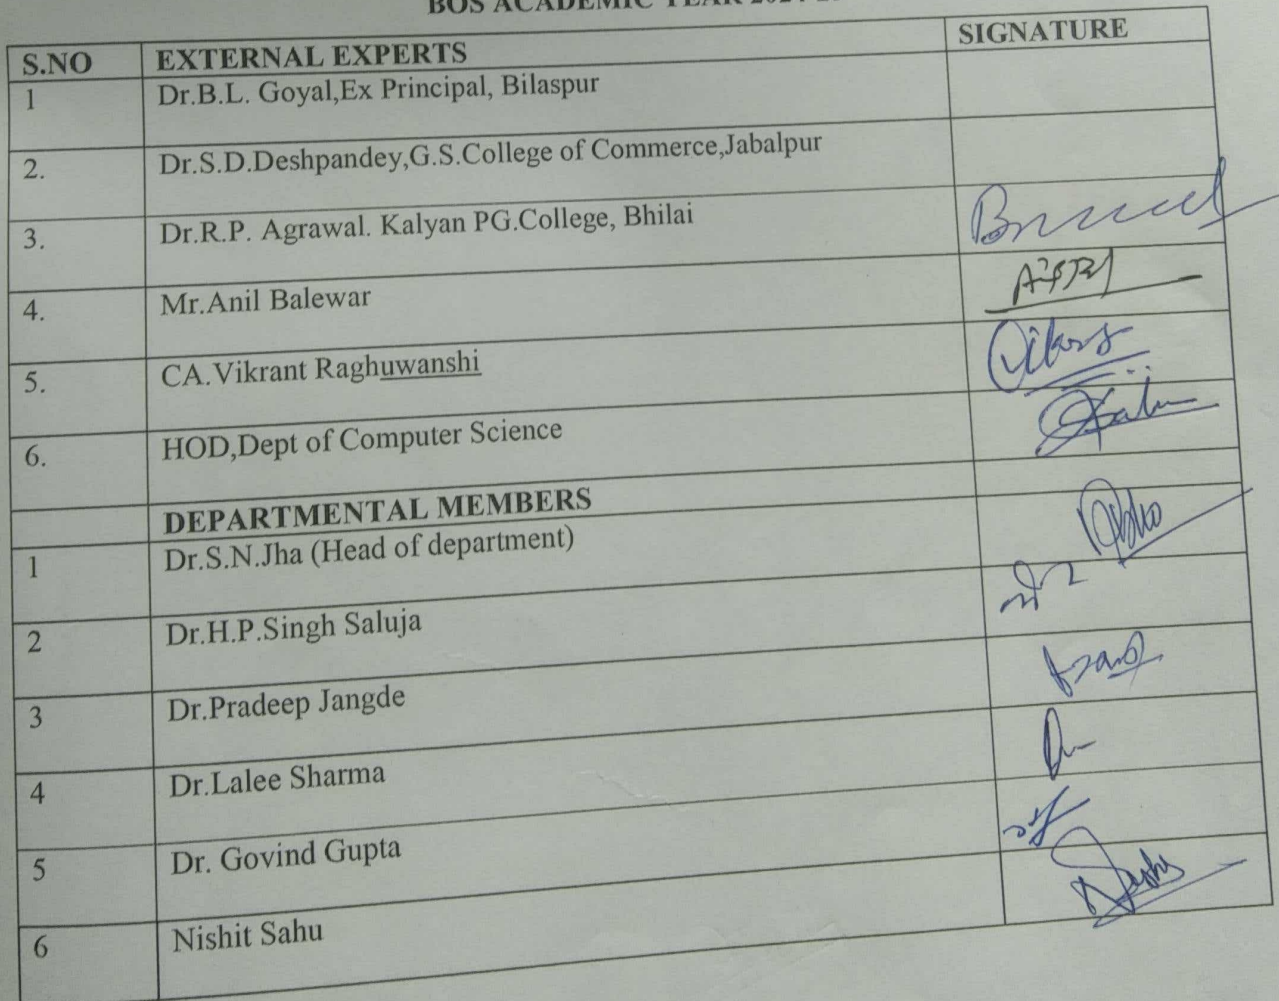 BOS ACADEMIC YEAR
S.NO EXTERNAL EXPERTS SIGNATURE
1 Dr.B.L. Goyal,Ex Principal, Bilaspur
2. Dr.S.D.Deshpandey,G.S.College of Commerce,Jabalpur
3. Dr.R.P. Agrawal. Kalyan PG.College, Bhilai
4. Mr.Anil Balewar
5. CA.Vikrant Raghuwanshi
6. HOD,Dept of Computer Science
DEPARTMENTAL MEMBERS
1 Dr.S.N.Jha (Head of department)
2 Dr.H.P.Singh Saluja
3 Dr.Pradeep Jangde
4 Dr.Lalee Sharma
5 Dr. Govind Gupta
6 Nishit Sahu